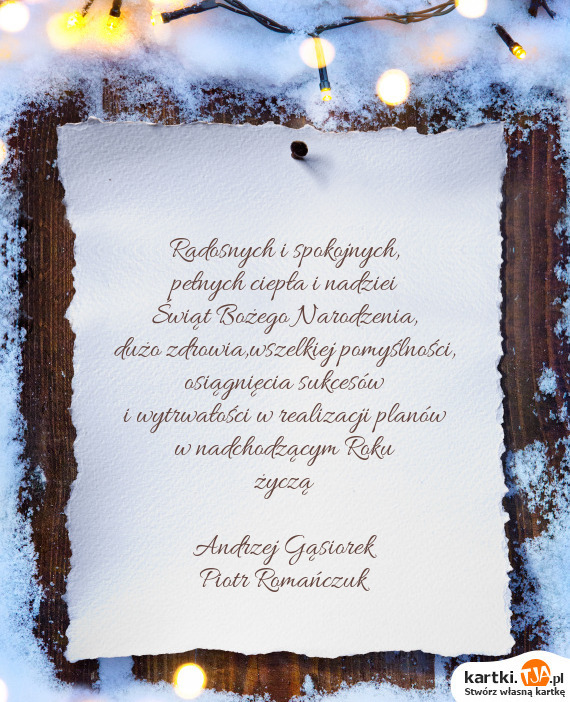 Radosnych i spokojnych,
pełnych ciepła i nadziei
Świąt Bożego Narodzenia,
dużo zdrowia,wszelkiej pomyślności,
osiągnięcia sukcesów
i wytrwałości w realizacji planów
w nadchodzącym Roku
życzą
Andrzej Gąsiorek
Piotr Romańczuk
kartki.TJA.pl
Stwórz własną kartkę